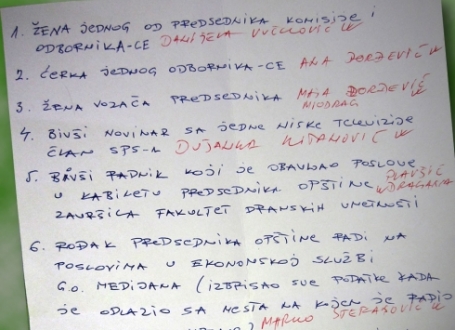 1. ŽENA JEDNOG OD PREDSEDNIKA KOMISIJE I
ODBORNIKA-CE DANIJELA VUČKOVIĆ
2. ĆERKA JEDNOG ODBORNIKA-CE ANA ĐORĐEVIĆ
3. ŽENA VOZAČA PREDSEDNIKA MAJA ĐORĐEVIĆ
MIODRAG
4. BIVŠI NOVINAR SA JEDNE NIŠKE TELEVIZIJE
ČLAN SPS-A DUŠANKA
5. BIVŠI RADNIK KOJI JE OBAVLJAO POSLOVE
U KABINETU PREDSEDNIKA OPŠTINE PLAVŠIĆ DRAGANA
ZAVRŠILA FAKULTET DRAMSKIH UMETNOSTI
6. ROĐAK PREDSEDNIKA OPŠTINE RADI NA
POSLOVIMA U EKONOMSKOJ SLUŽBI
G.O. MEDIJANA (IZBRISAO SVE PODATKE KADA
JE ODLAZIO SA MESTA NA KOJEM JE RADIO
MARKO STEFANOVIĆ